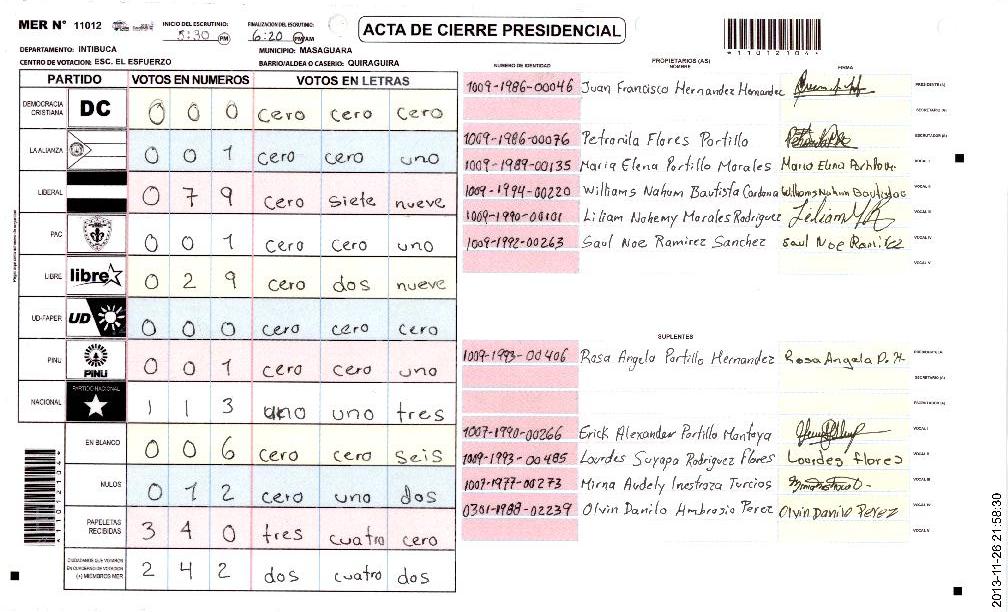 MER N° 11012
INICIO DEL ESCRUTINIO: 5:30 PM
FINALIZACION DEL ESCRUTINIO: 6:20 PM/AM
ACTA DE CIERRE PRESIDENCIAL
*11012104*
DEPARTAMENTO: INTIBUCA
MUNICIPIO: MASAGUARA
CENTRO DE VOTACION: ESC. EL ESFUERZO
BARRIO/ALDEA O CASERIO: QUIRAGUIRA
PARTIDO VOTOS EN NUMEROS VOTOS EN LETRAS
DEMOCRACIA CRISTIANA DC 0 0 0 cero cero cero
LA ALIANZA 0 0 1 cero cero uno
LIBERAL 0 7 9 cero siete nueve
PAC 0 0 1 cero cero uno
LIBRE libre 0 2 9 cero dos nueve
UD-FAPER UD 0 0 0 cero cero cero
PINU PINU 0 0 1 cero cero uno
NACIONAL PARTIDO NACIONAL 1 1 3 uno uno tres
EN BLANCO 0 0 6 cero cero seis
NULOS 0 1 2 cero uno dos
PAPELETAS RECIBIDAS 3 4 0 tres cuatro cero
CIUDADANOS QUE VOTARON EN CUADERNO DE VOTACION (+) MIEMBROS MER 2 4 2 dos cuatro dos
NUMERO DE IDENTIDAD PROPIETARIOS (AS) NOMBRE FIRMA
1009-1986-00046 Juan Francisco Hernandez Hernandez PRESIDENTE(A)
SECRETARIO (A)
1009-1986-00076 Petronila Flores Portillo ESCRUTADOR (A)
1009-1989-00135 Maria Elena Portillo Morales VOCAL I
1009-1994-00220 Williams Nahum Bautista Cardona Williams Nahum Bautista VOCAL II
1009-1990-00101 Liliam Nohemy Morales Rodriguez VOCAL III
1009-1992-00263 Saul Noe Ramirez Sanchez Saul Noe Ramirez VOCAL IV
VOCAL V
SUPLENTES
1009-1993-00406 Rosa Angela Portillo Hernandez Rosa Angela P. H. PRESIDENTE (A)
SECRETARIO (A)
ESCRUTADOR (A)
1007-1990-00266 Erick Alexander Portillo Montoya VOCAL I
1009-1993-00485 Lourdes Suyapa Rodriguez Flores Lourdes flores VOCAL II
1007-1977-00273 Mirna Audely Inestroza Turcios VOCAL III
0301-1988-02239 Olvin Danilo Ambrosio Perez Olvin Danilo Perez VOCAL IV
VOCAL V
*11012104*
2013-11-26 21:58:30